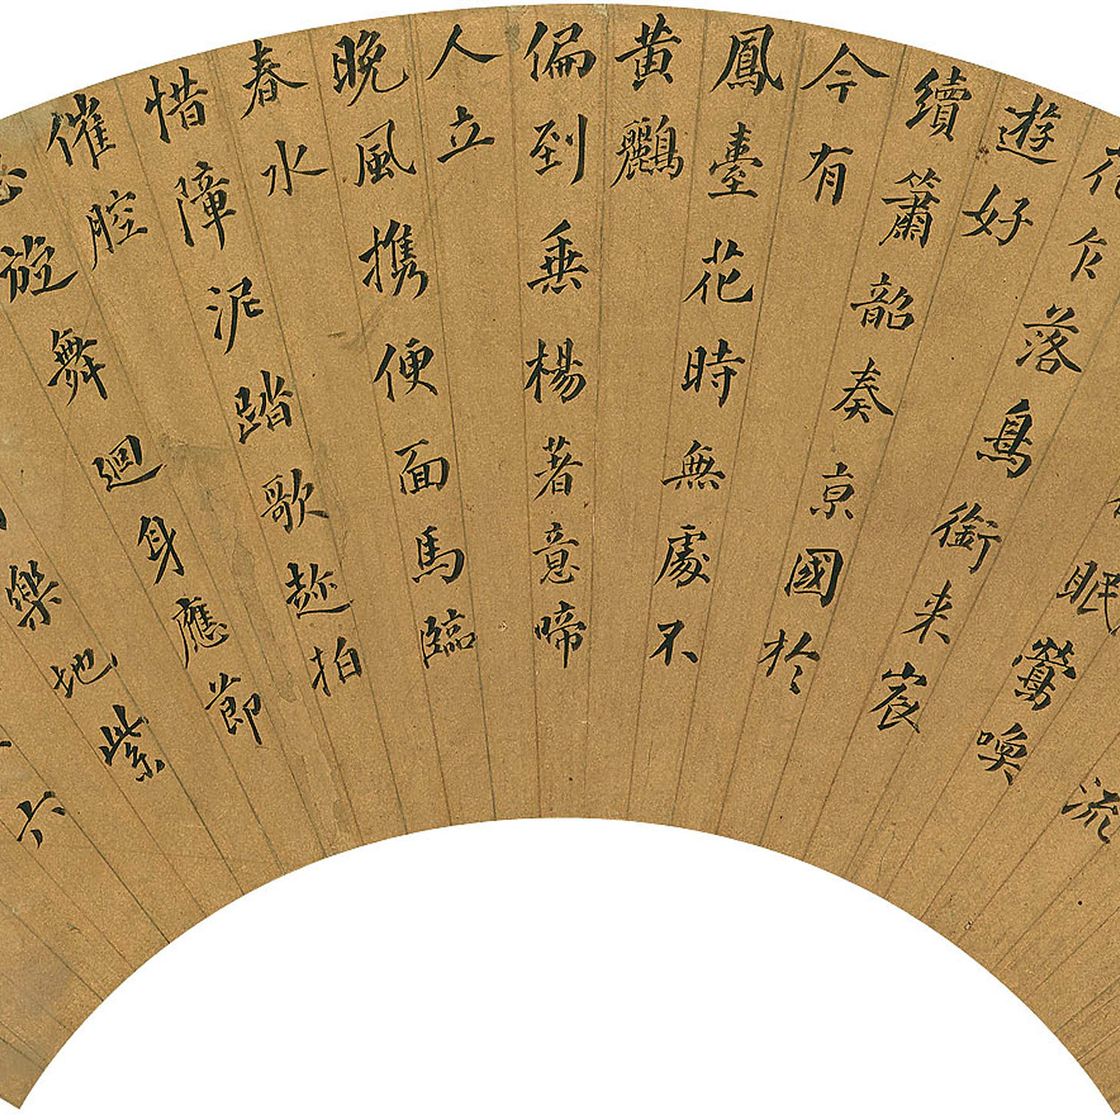 流
眠鶯喚
花乍落鳥銜来宸
遊好
續簫韶奏京國於
今有
鳳臺花時無處不
黃鸝
偏到垂楊著意啼
人立
晚風携便面馬臨
春水
惜障泥踏歌趂拍
催腔
旋舞迴身應節
樂地紫
六